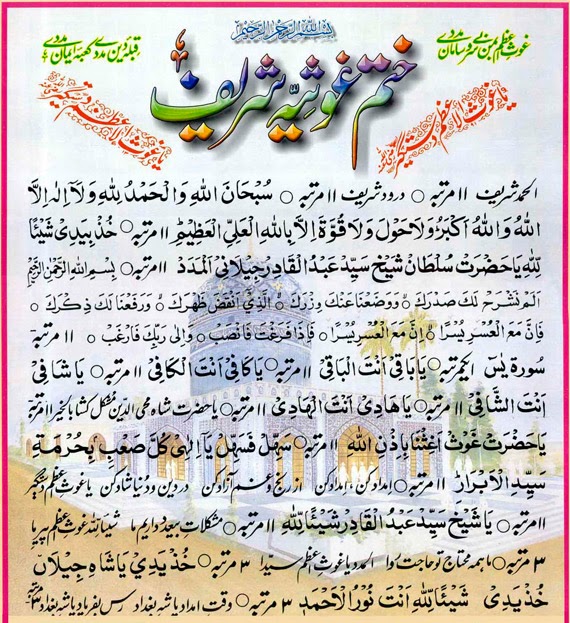 بِسْمِ اللهِ الرَّحْمٰنِ الرَّحِيْمِ
غوث اعظم بمن بے سرو سامان مددے
قبلہ دین مددے کعبہ ایمان مددے
ختم غوثیہ شریف
یا غوث الاعظم دستگیر
یا غوث الاعظم دستگیر
الحمد شریف ۱۱ مرتبہ ○ درود شریف ۱۱ مرتبہ ○ سُبْحَانَ اللهِ وَالْحَمْدُ لِلّٰهِ وَلَآ اِلٰهَ اِلَّا
اللهُ وَاللهُ اَكْبَرُ وَلَا حَوْلَ وَلَا قُوَّةَ اِلَّا بِاللهِ الْعَلِيِّ الْعَظِيْمِ ۱۱ مرتبہ ○ خُذْ بِيَدِيْ شَيْئًا
لِلّٰهِ يَا حَضْرَتْ سُلْطَانْ شَيْخْ سَيِّدْ عَبْدُ الْقَادِرْ جِيْلَانِيْ اَلْمَدَدْ ۱۱ مرتبہ ○ بِسْمِ اللهِ الرَّحْمٰنِ الرَّحِيْمِ
اَلَمْ نَشْرَحْ لَكَ صَدْرَكَ ○ وَوَضَعْنَا عَنْكَ وِزْرَكَ ○ الَّذِيْ اَنْقَضَ ظَهْرَكَ ○ وَرَفَعْنَا لَكَ ذِكْرَكَ ○
فَاِنَّ مَعَ الْعُسْرِ يُسْرًا ○ اِنَّ مَعَ الْعُسْرِ يُسْرًا ○ فَاِذَا فَرَغْتَ فَانْصَبْ ○ وَاِلٰى رَبِّكَ فَارْغَبْ ○ ۱۱ مرتبہ
سورہ یٰسٓ ایک مرتبہ ○ يَا بَاقِيْ اَنْتَ الْبَاقِيْ ۱۱ مرتبہ ○ يَا كَافِيْ اَنْتَ الْكَافِيْ ۱۱ مرتبہ ○ يَا شَافِيْ
اَنْتَ الشَّافِيْ ۱۱ مرتبہ ○ يَا هَادِيْ اَنْتَ الْهَادِيْ ۱۱ مرتبہ ○ یا حضرت شاہ محی الدین مشکل کشا بالخیر ۱۱ مرتبہ
يَا حَضْرَتْ غَوْثْ اَغِثْنَا بِاِذْنِ اللهِ ۱۱ مرتبہ ○ سَهِّلْ فَسَهِّلْ يَآ اِلٰهِيْ كُلَّ صَعْبٍ بِحُرْمَةِ
سَيِّدِ الْاَبْرَارْ ۱۱ مرتبہ ○ امداد کن امداد کن از رنج و غم آزاد کن در دین و دنیا شاد کن یا غوث اعظم دستگیر
۱۱ مرتبہ ○ يَا شَيْخْ سَيِّدْ عَبْدَ الْقَادِرْ شَيْئًا لِلّٰهِ ۱۱ مرتبہ ○ مشکلات بے عدد داریم ما شیئا للہ غوث اعظم پیر ما
۳ مرتبہ ○ ما ہمہ محتاج تو حاجت روا المدد یا غوث اعظم سیدا ۳ مرتبہ ○ خُذْ يَدِيْ يَا شَاهِ جِيْلَانْ
خُذْ يَدِيْ شَيْئًا لِلّٰهِ اَنْتَ نُوْرُ الْاَحْمَدِ ۳ مرتبہ ○ وقت امداد یا شہ بغداد رس بفریاد یا شہ بغداد ۳ مرتبہ